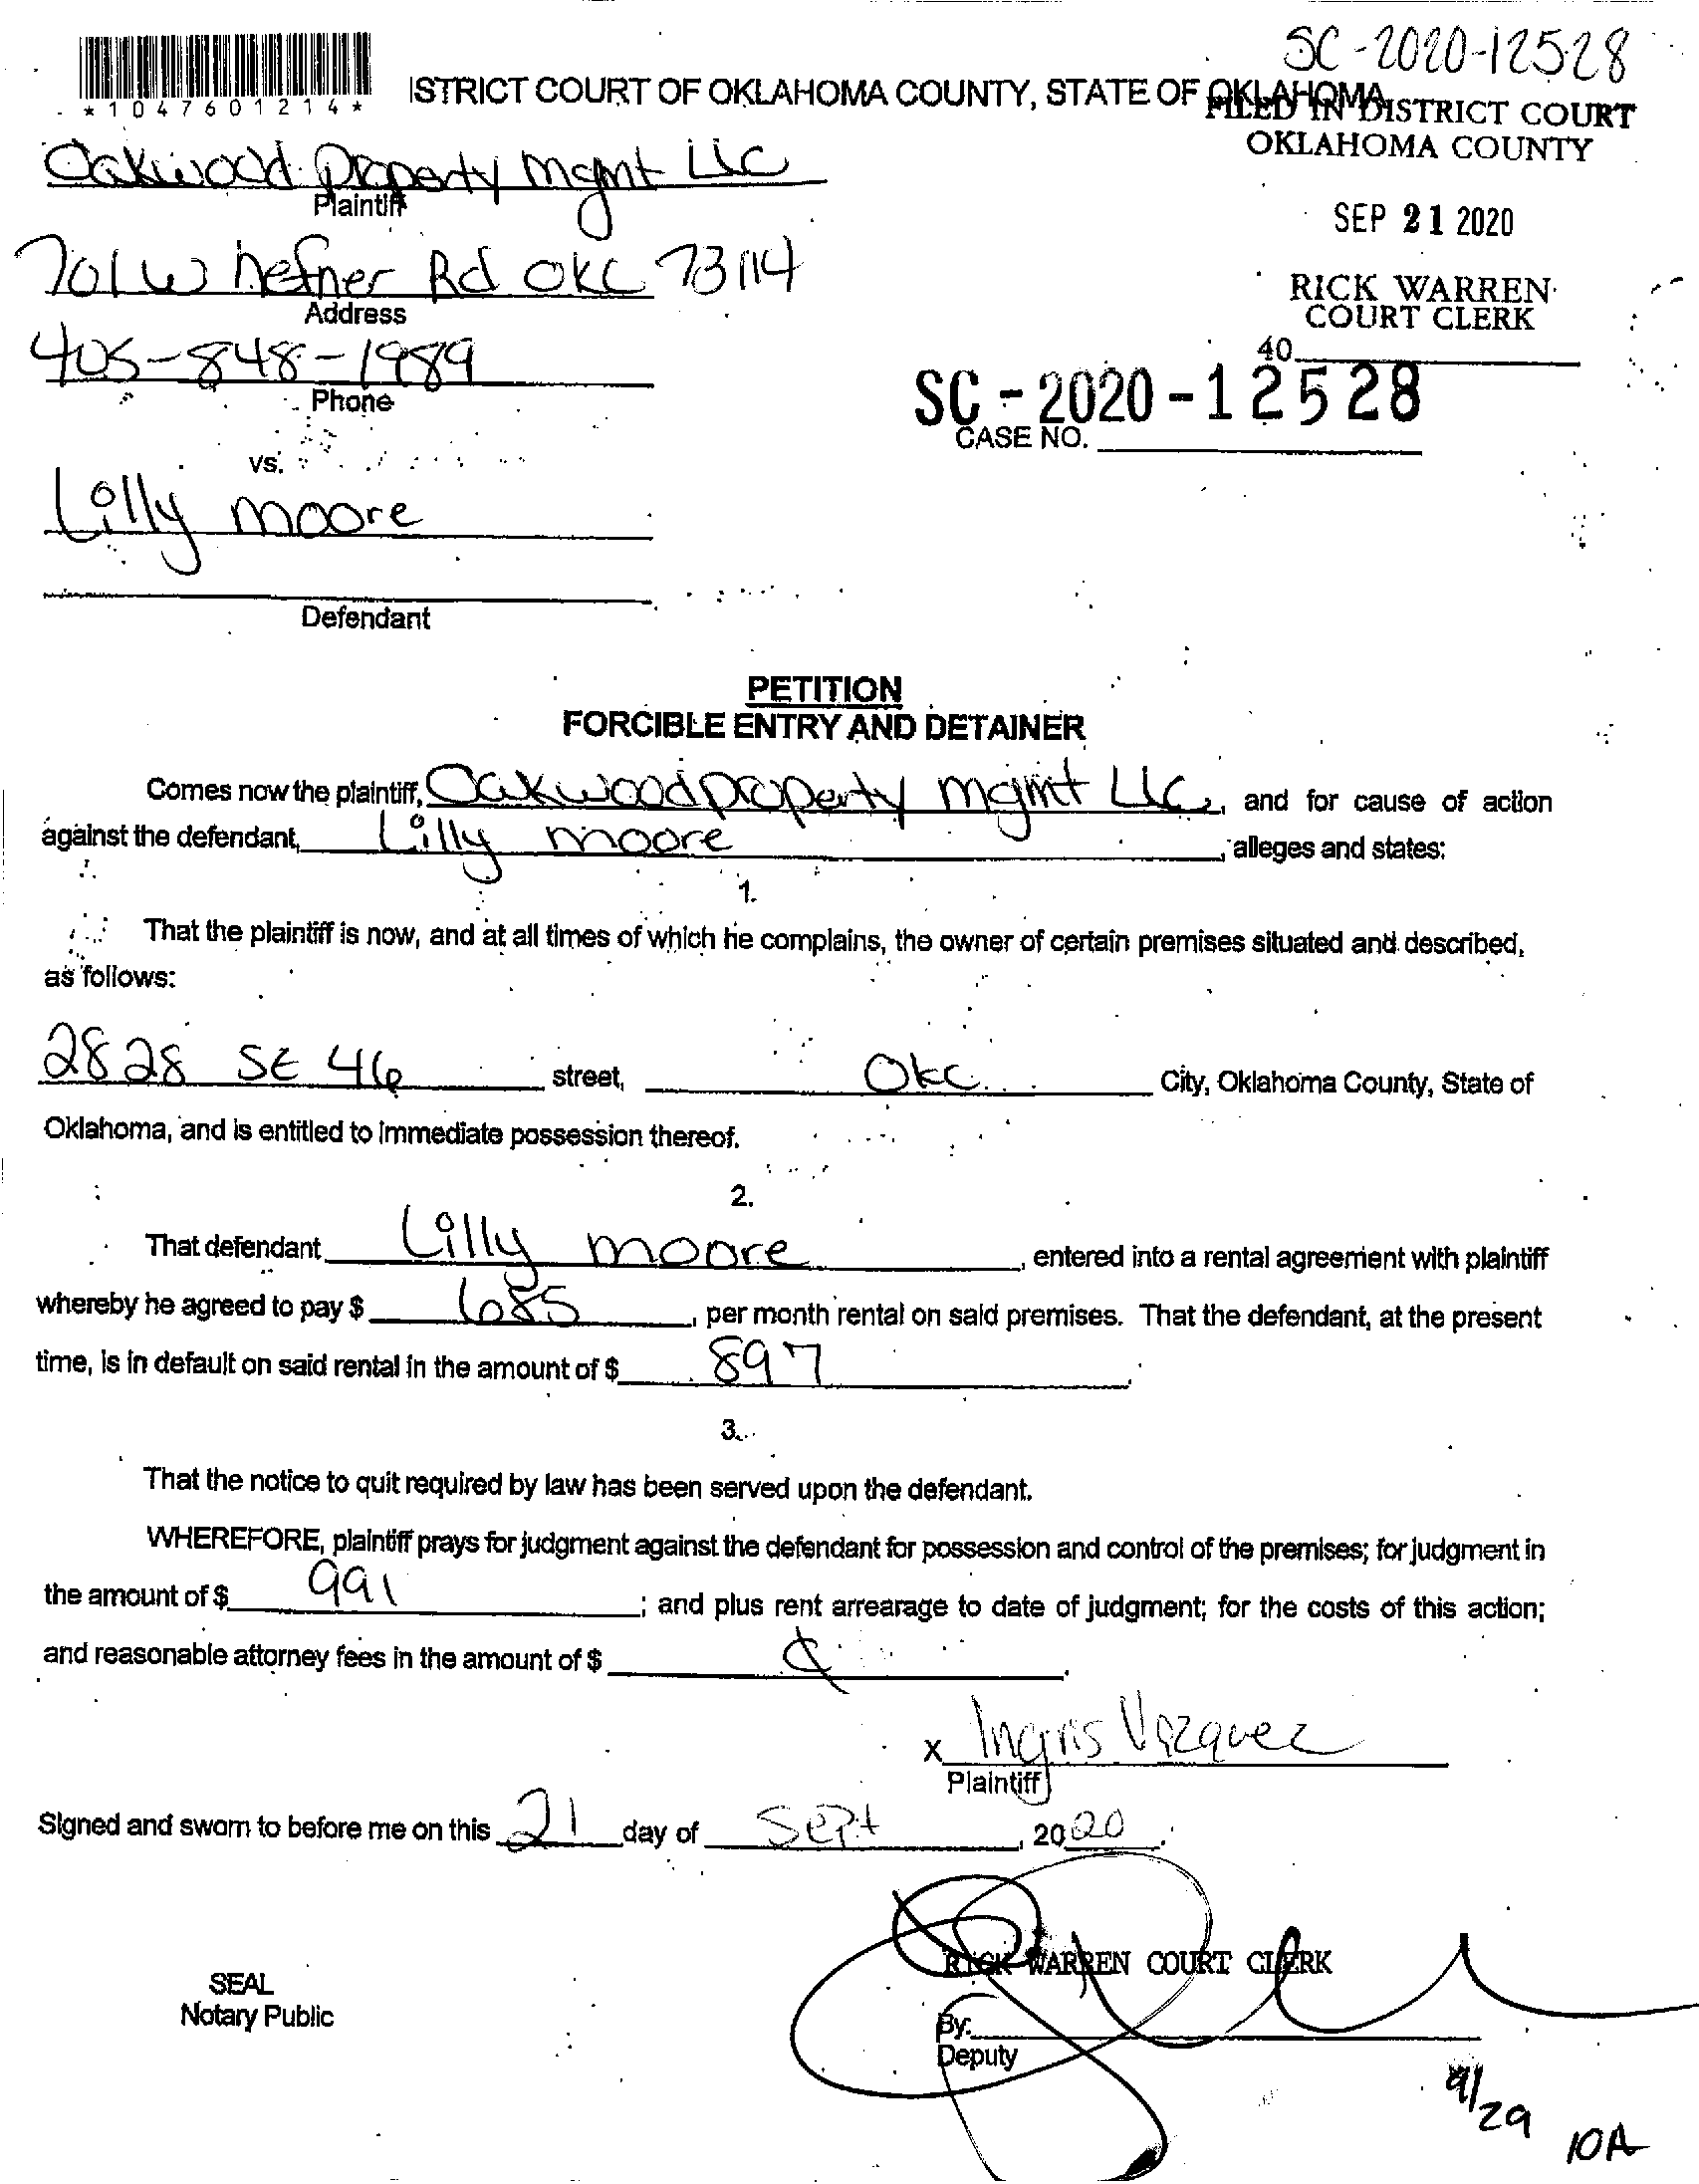 SC-2020-12528
ISTRICT COURT OF OKLAHOMA COUNTY, STATE OF OKLAHOMA
*1047601214*
FILED IN DISTRICT COURT
OKLAHOMA COUNTY
Oakwood Property mgmt LLC
Plaintiff
SEP 21 2020
701 W hefner Rd OKC 73114
Address
RICK WARREN
COURT CLERK
40
405-848-1989
Phone
SC-2020-12528
CASE NO.
vs.
Lilly moore
Defendant
PETITION
FORCIBLE ENTRY AND DETAINER
Comes now the plaintiff, Oakwood property mgmt LLC, and for cause of action
against the defendant, Lilly moore, alleges and states:
1.
That the plaintiff is now, and at all times of which he complains, the owner of certain premises situated and described,
as follows:
2828 SE 46 street, OKC City, Oklahoma County, State of
Oklahoma, and is entitled to immediate possession thereof.
2.
That defendant Lilly moore, entered into a rental agreement with plaintiff
whereby he agreed to pay $ 685, per month rental on said premises. That the defendant, at the present
time, is in default on said rental in the amount of $ 897.
3.
That the notice to quit required by law has been served upon the defendant.
WHEREFORE, plaintiff prays for judgment against the defendant for possession and control of the premises; for judgment in
the amount of $ 991; and plus rent arrearage to date of judgment; for the costs of this action;
and reasonable attorney fees in the amount of $
x Ingris Vazquez
Plaintiff
Signed and sworn to before me on this 21 day of Sept, 2020.
RICK WARREN COURT CLERK
SEAL
Notary Public
By:
Deputy
9/29 10A